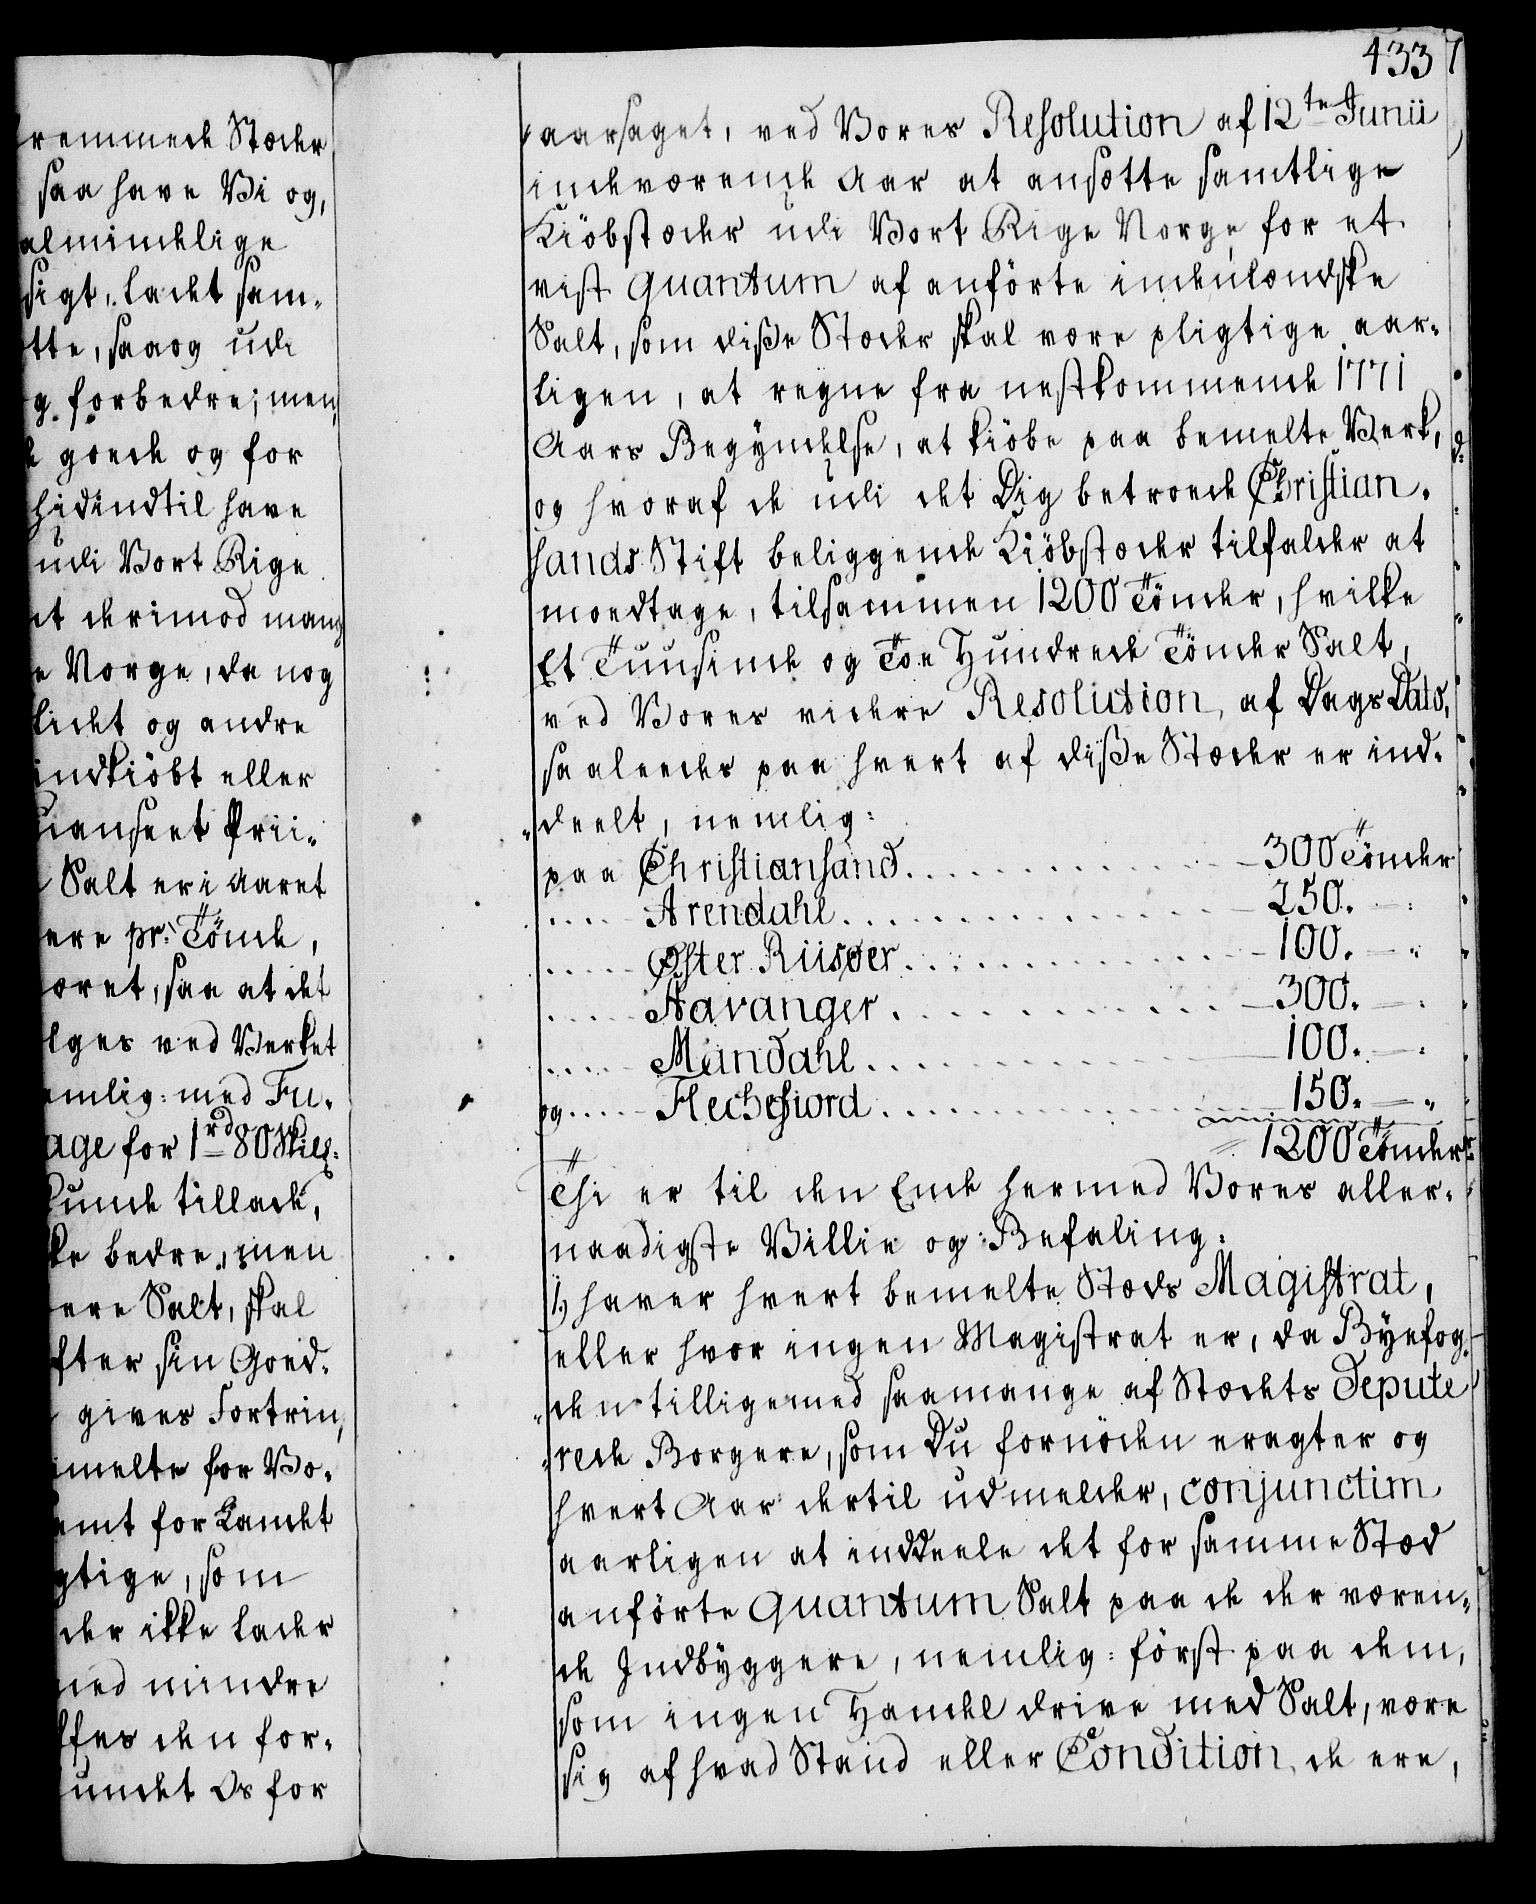 remmede Stæder
saa have Vi og,
almindelige
sigt, ladet sam-
tte, saaog udi
g forbedre; men
e goede og for
hidindtil have
udi Vort Rige
et derimod mang
e Norge, da nog
lidet og andre
indkiöbt eller
uanseet Prii-
Salt er i Aaret
ere pr. Tönde,
æret, saa at det
lges ved Verket
emlig: med Fu-
age for 1 rd 80 Skill:
kunde tillade,
ke bedre, men
ere Salt, skal
fter sin Goed-
gives Fortrin,
melte for Vo-
emt for Landet
gtige, som
der ikke lader
med mindre
ffes den for-
undet Os for
433
aarsaget, ved Vores Resolution af 12te Junii
indeværende Aar at ansætte samtlige
Kiöbstæder udi Vort Rige Norge for et
vist quantum af anförte indenlændske
Salt, som disse Stæder skal være pligtige aar-
ligen, at regne fra nestkommende 1771
Aars Begyndelse, at kiöbe paa bemelte Verk,
og hvoraf de udi det Dig betroede Christian-
sands Stift beliggende Kiöbstæder tilfalder at
modtage, tilsammen 1200 Tönder, hvilke
Et Tuusinde og Toe Hundrede Tönder Salt,
ved Vores videre Resolution, af Dags Dato,
saaleedes paa hvert af disse Stæder er ind-
deelt, nemlig:
paa Christiansand. 300 Tönder
Arendahl. 250.
Øster Riisøer. 100.
Stavanger. 300.
Mandahl. 100.
og Flechefiord. 150.
1200 Tönder
Thi er til den Ende hermed Vores aller-
naadigste Villie og Befaling:
1) haver hvert bemelte Stæds Magistrat,
eller hvor ingen Magistrat er, da Byefog-
den tilligemed saamange af Stædets Depute
rede Borgere, som Du fornöden eragter og
hvert Aar dertil udmelder, conjunctim
aarligen at inddeele det for samme Stæd
anförte Quantum Salt paa de der væren-
de Indbyggere, nemlig: först paa dem,
som ingen Handel drive med Salt, være
sig af hvad Stand eller Condition, de ere,